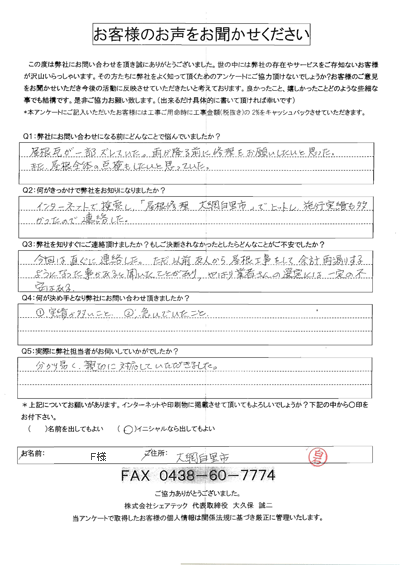 お客様のお声をお聞かせください
この度は弊社にお問い合わせを頂き誠にありがとうございました。世の中には弊社の存在やサービスをご存知ないお客様
が沢山いらっしゃいます。その方たちに弊社をよく知って頂くためのアンケートにご協力頂けないでしょうか?お客様のご意見
をお聞かせいただき今後の活動に反映させていただきたいと考えております。良かったこと、嬉しかったことどのような些細な
事でも結構です。是非ご協力お願い致します。(出来るだけ具体的に書いて頂ければ幸いです)
*本アンケートにご記入いただいたお客様には工事ご用命時に工事金額(税抜き)の2%をキャッシュバックさせていただきます。
Q1:弊社にお問い合わせになる前にどんなことで悩んでいましたか?
屋根瓦が一部ズレていた。雨が降る前に修理をお願いしたいと思った。
また、屋根全体の点検もしたいと思っていた。
Q2:何がきっかけで弊社をお知りになりましたか?
インターネットで検索し、「屋根修理 大網白里市」でヒットし、施行実績も多
かったので連絡した。
Q3:弊社を知りすぐにご連絡頂けましたか?もしご決断されなかったとしたらどんなことがご不安でしたか?
今回は直ぐに連絡した。ただ以前友人から屋根工事をして余計雨漏りする
ようになった事があると聞いてたことがあり、やはり業者さんの選定には一定の不
安はある。
Q4:何が決め手となり弊社にお問い合わせ頂きましたか?
①実績が多いこと ②急いでいたこと
Q5:実際に弊社担当者がお伺いしていかがでしたか?
分かり易く、親切に対応していただきました。
*上記についてお願いがあります。インターネットや印刷物に掲載させて頂いてもよろしいでしょうか?下記の中から○印を
お付け下さい。
( )名前を出してもよい (○)イニシャルなら出してもよい
お名前: F様 ご住所: 大網白里市
FAX 0438-60-7774
ご協力ありがとうございました。
株式会社シェアテック 代表取締役 大久保 誠二
当アンケートで取得したお客様の個人情報は関係法規に基づき厳正に管理いたします。